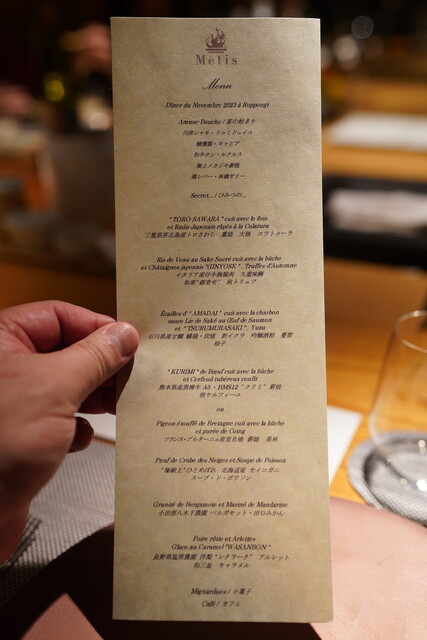 Métis
Menu
Dîner du Novembre 2023 à Roppongi
Amuse-Bouche / 宴の始まり
川俣シャモ・ドゥミドュイユ
燻製・キャビア
和牛タン・ルクルス
極上メカジキ薪焼
鶏レバー・林檎ゼリー
Secret... / ひみつの...
"TORO-SAWARA" cuit avec le foin
et Radis Japonais râpés à la Colatura
三重県答志島産トロさわら 藁焼 大根 コラトゥーラ
Ris de Veau au Sake Sucré cuit avec la bûche
et Châtaignes japonais "GINYOSE", Truffes d'Automne
イタリア産仔牛胸腺肉 九重味醂
和栗"銀寄せ" 秋トリュフ
Écailles d'"AMADAI" cuit avec le charbon
sauce Lie de Saké au Œuf de Saumon
et "TSURUMURASAKI", Yuzu
石川県産甘鯛 鱗揚・炭焼 新イクラ 吟醸酒粕 蔓紫
柚子
"KURIMI" de Bœuf cuit avec la bûche
et Cerfeuil tubéreux confit
熊本県産黒樺牛 A5・BMS12"クリミ"薪焼
根セルフィーユ
ou
Pigeon étouffé de Bretagne cuit avec la bûche
et purée de Coing
フランス・ブルターニュ産窒息鳩 薪焼 花林
Pieuf de Crabe des Neiges et Soupe de Poisson
"極献上"ひとめぼれ 北海道産 セイコガニ
スープ・ド・ポワソン
Granité de Bergamote et Mariné de Mandarine
小田原八木下農園 ベルガモット・田口みかん
Poire rôtie et Arlettes
Glace au Caramel "WASANBON"
長野県塩原農園 洋梨"レクラーク" アルレット
和三盆 キャラメル
Mignardises / 小菓子
Café / カフェ